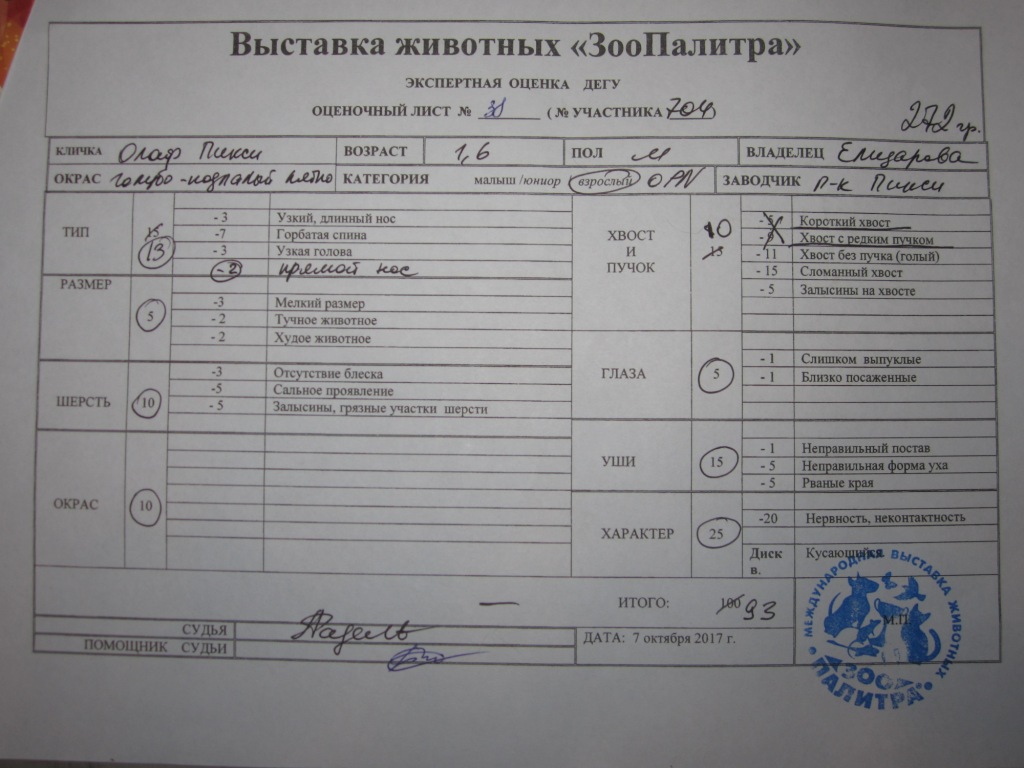 Выставка животных «ЗооПалитра»
ЭКСПЕРТНАЯ ОЦЕНКА ДЕГУ
ОЦЕНОЧНЫЙ ЛИСТ № 31 ( № УЧАСТНИКА 704)
272 гр.
КЛИЧКА Олаф Пикси ВОЗРАСТ 1,6 ПОЛ м ВЛАДЕЛЕЦ Елизарова
ОКРАС голуб-подпалой пятно КАТЕГОРИЯ малыш /юниор взрослый OPN ЗАВОДЧИК р-к Пикси
ТИП 15 13
- 3 Узкий, длинный нос
-7 Горбатая спина
- 3 Узкая голова
-2 прямой нос
РАЗМЕР 5
-3 Мелкий размер
- 2 Тучное животное
- 2 Худое животное
ШЕРСТЬ 10
-3 Отсутствие блеска
-5 Сальное проявление
- 5 Залысины, грязные участки шерсти
ОКРАС 10
ХВОСТ И ПУЧОК 10 15
- 5 Короткий хвост
Хвост с редким пучком
- 11 Хвост без пучка (голый)
- 15 Сломанный хвост
- 5 Залысины на хвосте
ГЛАЗА 5
- 1 Слишком выпуклые
- 1 Близко посаженные
УШИ 15
- 1 Неправильный постав
- 5 Неправильная форма уха
- 5 Рваные края
ХАРАКТЕР 25
-20 Нервность, неконтактность
Диск в. Кусающийся
ИТОГО: 100 93
СУДЬЯ
ПОМОЩНИК СУДЬИ
ДАТА: 7 октября 2017 г.
М.П.
МЕЖДУНАРОДНАЯ ВЫСТАВКА ЖИВОТНЫХ
ЗОО
ПАЛИТРА